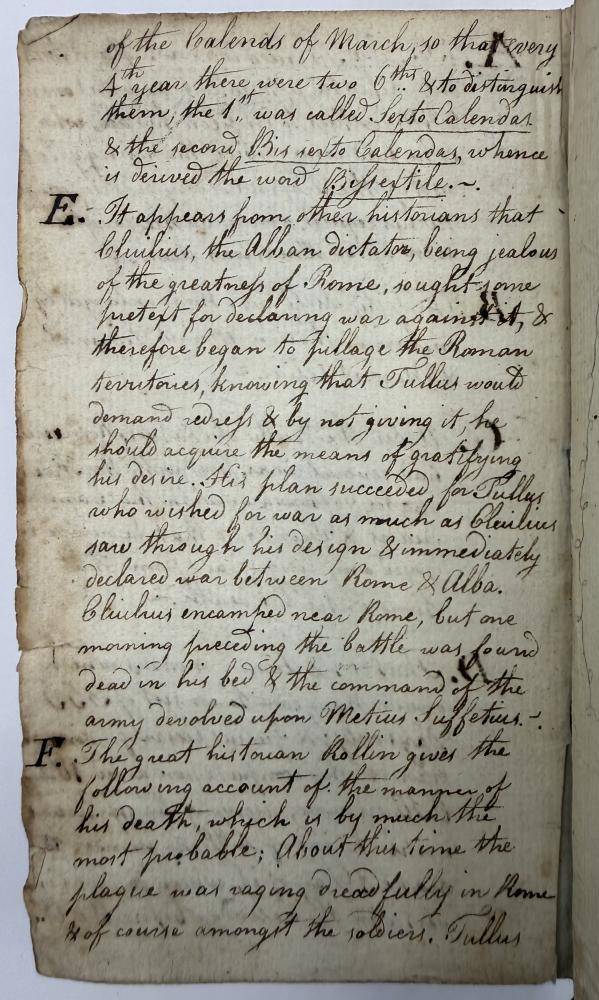 of the Calends of March, so that every
4th year there were two 6ths & to distinguish
them, the 1st was called Sexto Calendas
& the second Bis sexto Calendas, whence
is derived the word Bissextile. -.
E. It appears from other historians that
Cluilius, the Alban dictator, being jealous
of the greatness of Rome, sought some
pretext for declaring war against it, &
therefore began to pillage the Roman
territories, knowing that Tullus would
demand redress & by not giving it, he
should acquire the means of gratifying
his desire. His plan succeeded, for Tullus
who wished for war as much as Cluilius
saw through his design & immediately
declared war between Rome & Alba.
Cluilius encamped near Rome, but one
morning preceding the battle was found
dead in his bed & the command of the
army devolved upon Metius Suffetius. -.
F. The great historian Rollin gives the
following account of the manner of
his death, which is by much the
most probable; About this time the
plague was raging dreadfully in Rome
& of course amongst the soldiers. Tullus